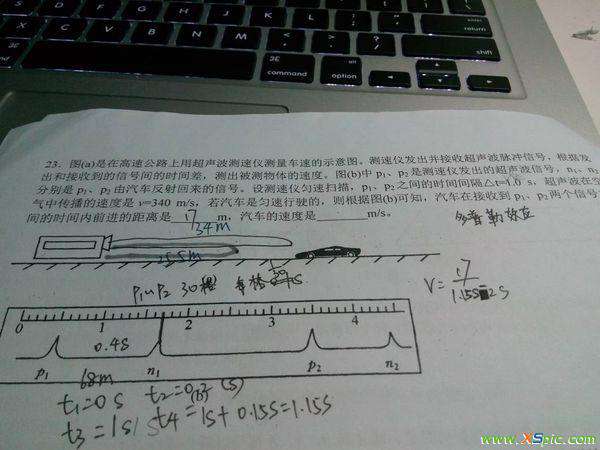 command
option
return
shift
command
option
23. 图(a)是在高速公路上用超声波测速仪测量车速的示意图。测速仪发出并接收超声波脉冲信号，根据发
出和接收到的信号间的时间差，测出被测物体的速度。图(b)中p₁、p₂是测速仪发出的超声波信号，n₁、n₂
分别是p₁、p₂由汽车反射回来的信号。设测速仪匀速扫描，p₁、p₂之间的时间间隔Δt=1.0 s，超声波在空
气中传播的速度是v=340 m/s，若汽车是匀速行驶的，则根据图(b)可知，汽车在接收到p₁、p₂两个信号
间的时间内前进的距离是 17 m，汽车的速度是 m/s。
多普勒效应
34m
p₁ p₂ 30格 每格
V= 17
0 1 2 3 4
0.4s
p₁ n₁ p₂ n₂
68m
(b)
t₁=0s t₂=0.2(s)
t₃=1s t₄=1s+0.15s=1.15s
www.XSpic.com